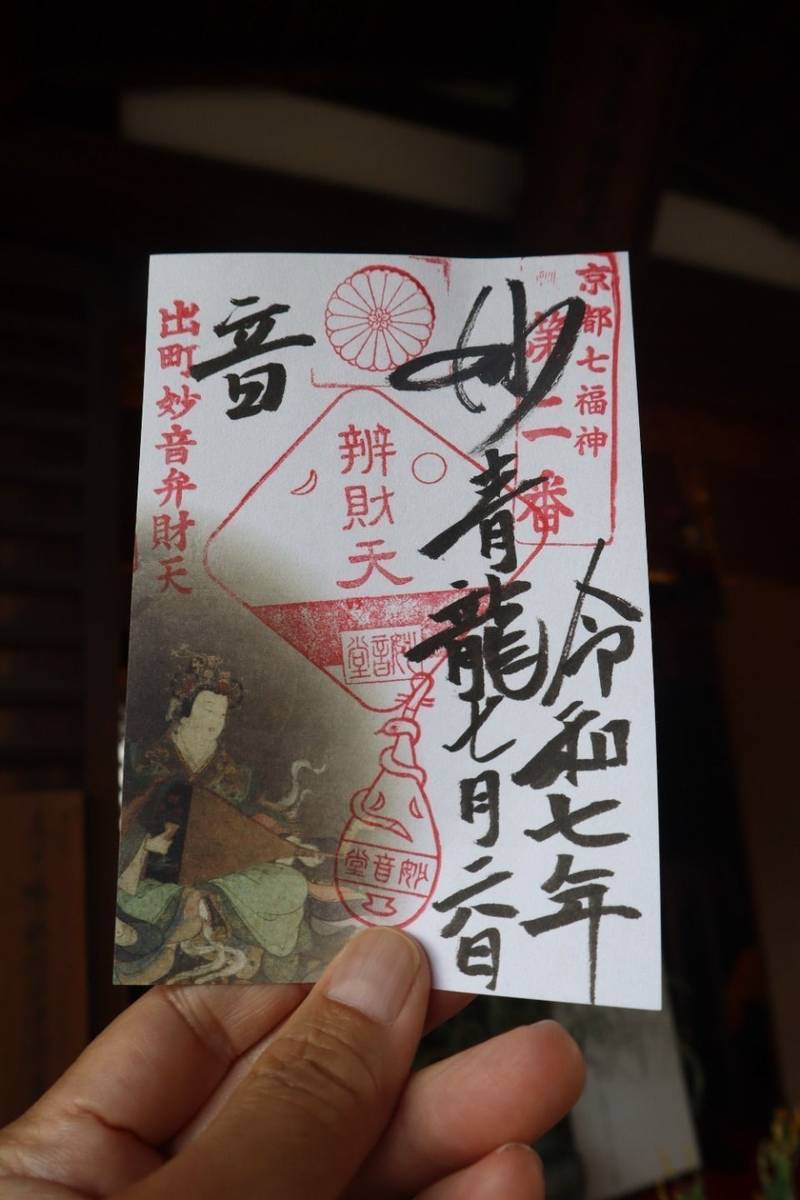 京都七福神
第二番
令和七年
妙
青龍
七月二八日
辨財天
妙音堂
妙音堂
音
出町妙音弁財天